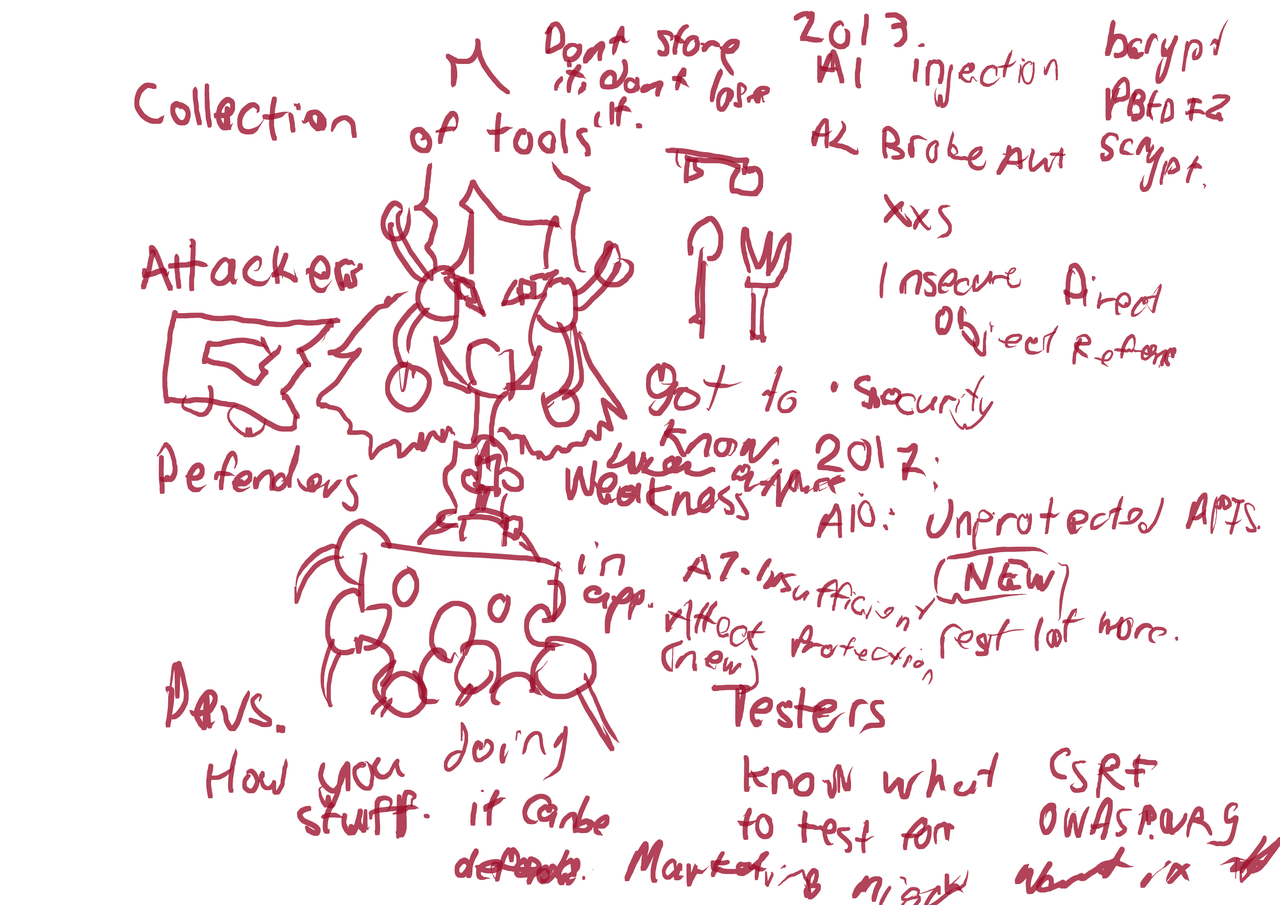 Dont store
it, don't lose
it.
Collection
of tools
Attackers
Defenders
2013.
A1 injection
A2 Broke Aut
xxs
Insecure Direct
Object Refer
bcrypt
PBKDF2
scrypt.
Got to
know
Weakness
in
app.
security
2017:
A10: Unprotected APIs.
NEW
A7. Insufficient
Attact Protection
(new)
rest lot more.
Devs.
How you doing
stuff. it can be
Testers
know what
to test for
CSRF
OWASP.ORG
Marketing might want